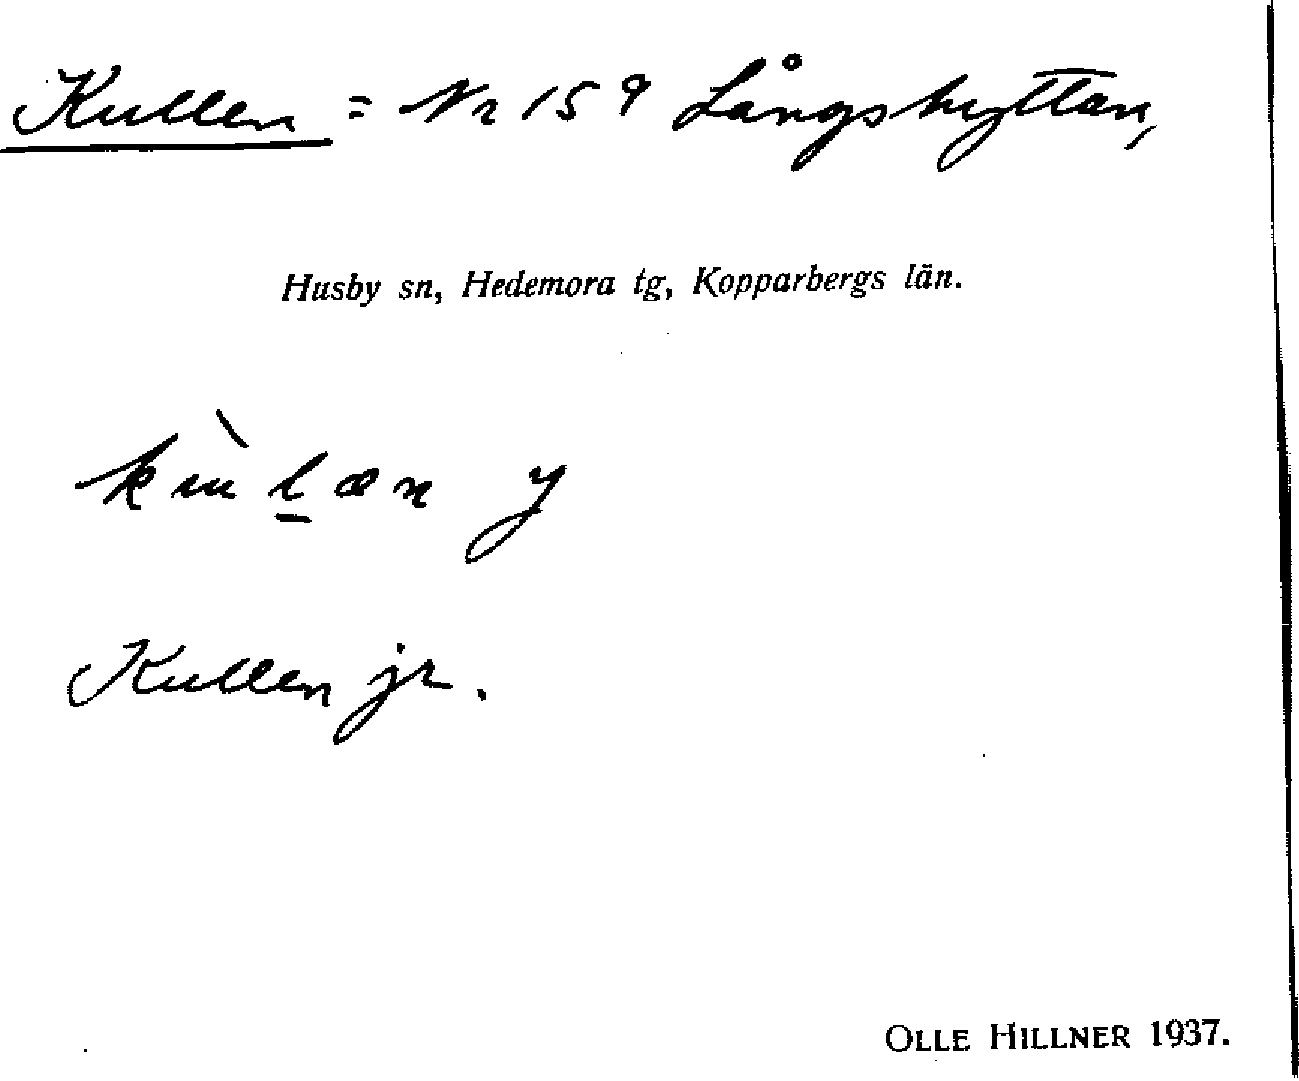 Kullen = Nr 159 Långshyttan,
Husby sn, Hedemora tg, Kopparbergs län.
kùl̠æn y
Kullen jr.
OLLE HILLNER 1937.